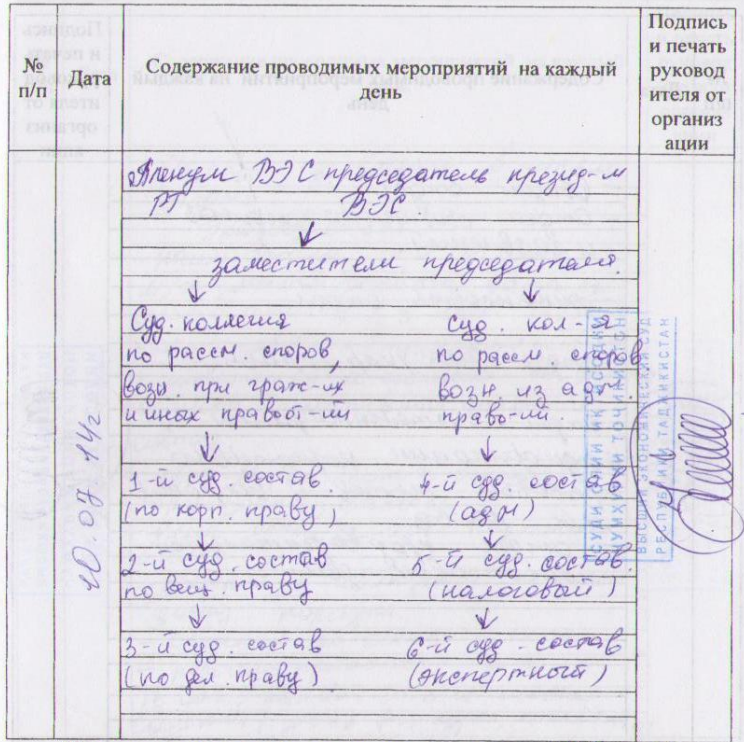 № п/п
Дата
Содержание проводимых мероприятий на каждый день
Подпись и печать руковод ителя от организ ации
Пленум ВЭС председатель презид-м
РТ ВЭС.
заместители председателя.
Суд. коллегия
по рассм. споров,
возн. при граж-их
и иных правоот-ий
суд. кол-я
по рассм споров
возн. из адм.
право-ий.
1-й суд. состав
(по корп. праву)
2-й суд. состав
по вещ. праву
3-й суд. состав
(по дел. праву)
4-й суд. состав
(адм)
5-й суд. состав.
(налоговый)
6-й суд. состав
(экспертный)
14г
СУДИ ОЛИИ ИҚТИСОДИИ
ҶУМҲУРИИ ТОҶИКИСТОН
ВЫСШИЙ ЭКОНОМИЧЕСКИЙ СУД
РЕСПУБЛИКИ ТАДЖИКИСТАН